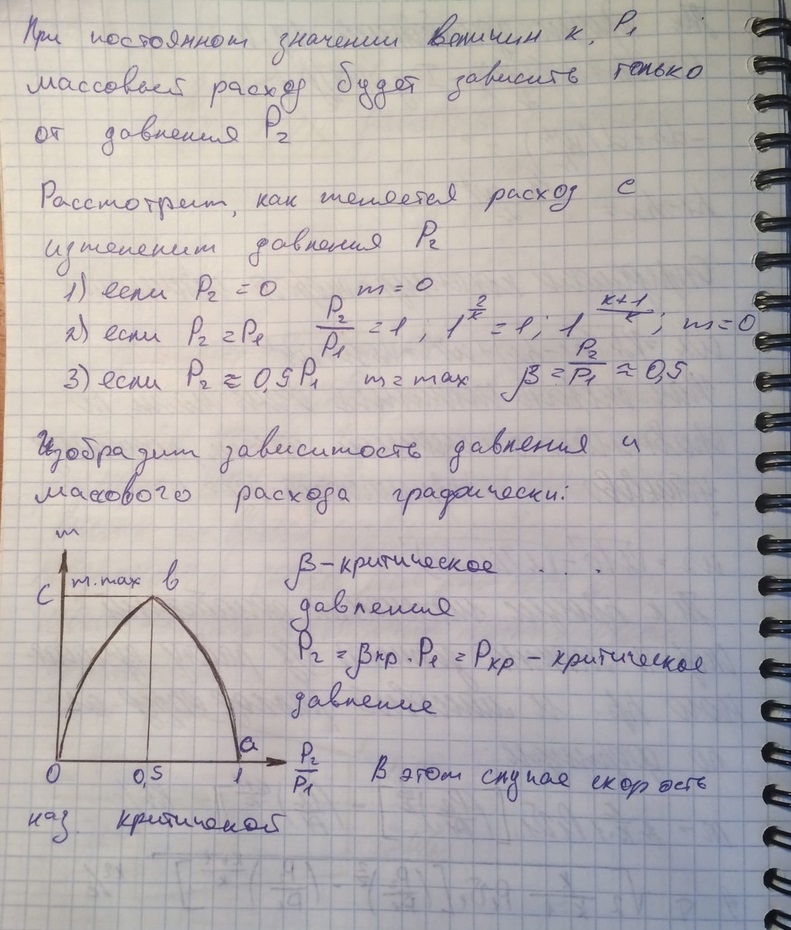 При постоянном значении величин к, P₁
массовый расход будет зависить только
от давления P₂
Рассмотрим, как меняется расход с
изменением давления P₂
1) если P₂ = 0 m = 0
2) если P₂ = P₁ P₂/P₁ = 1, 1^(2/к) = 1; 1^((к+1)/к); m = 0
3) если P₂ ≈ 0,5 P₁ m = max β = P₂/P₁ ≈ 0,5
Изобразим зависимость давления и
массового расхода графически:
m
C m.max b
β – критическое . . .
давления
P₂ = βкр · P₁ = Pкр – критическое
давление
a
0 0,5 1 P₂/P₁
В этом случае скорость
наз. критической